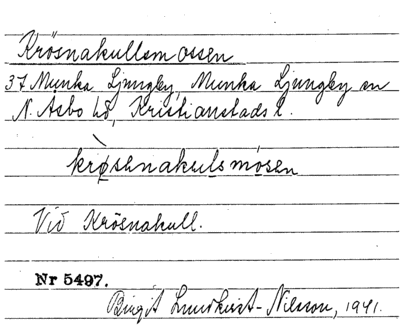 Krösnakullsmossen
37 Munka Ljungby, Munka Ljungby sn
N. Åsbo hd, Kristianstads l.
krø̀senakulsmosen
Vid Krösnakull.
Nr 5497.
Birgit Lundkvist-Nilsson, 1941.